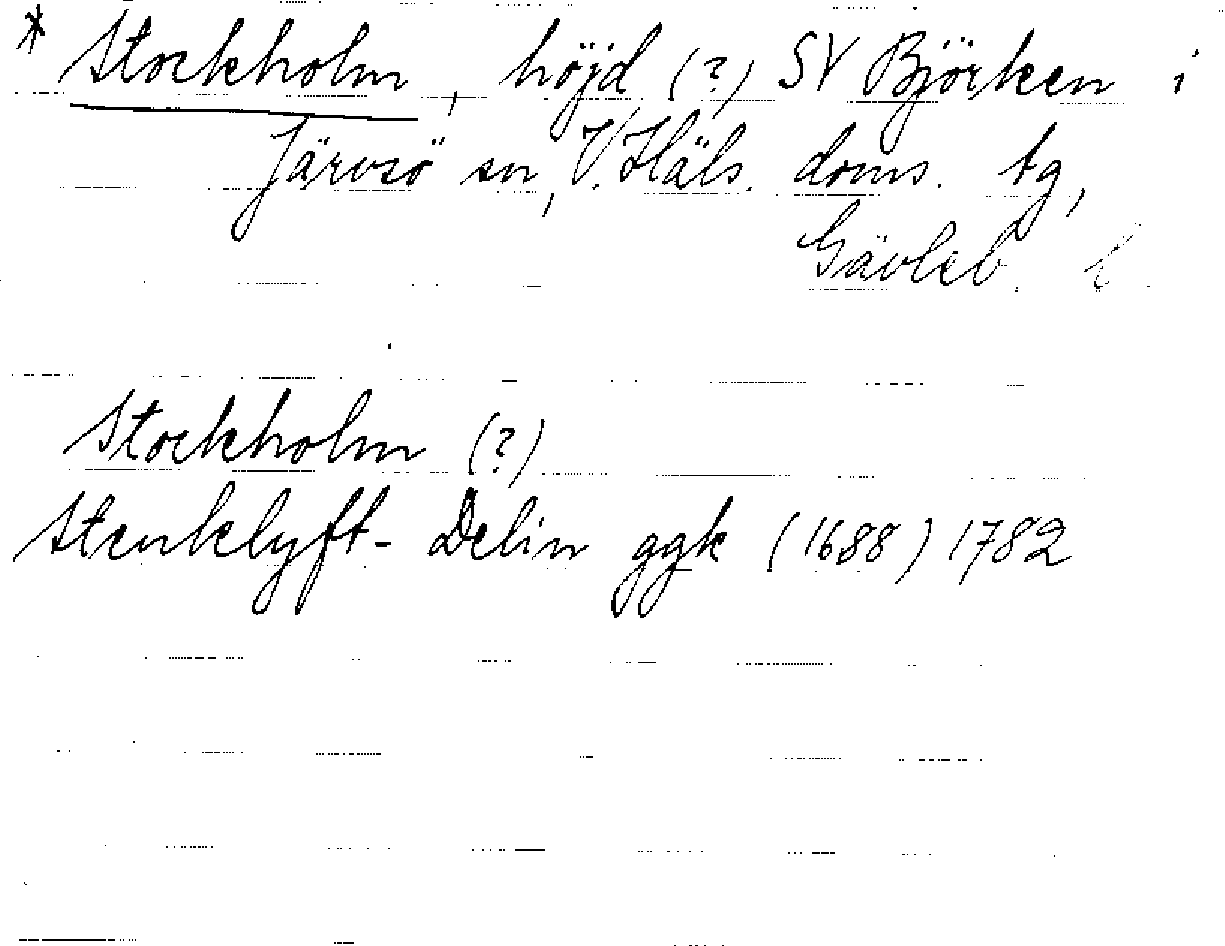 * Stockholm, höjd (?) SV Björken i
Järvsö sn, V. Häls. doms. tg,
Gävleb. l.
Stockholm (?)
Stenklyft- Delin ggk (1688) 1782